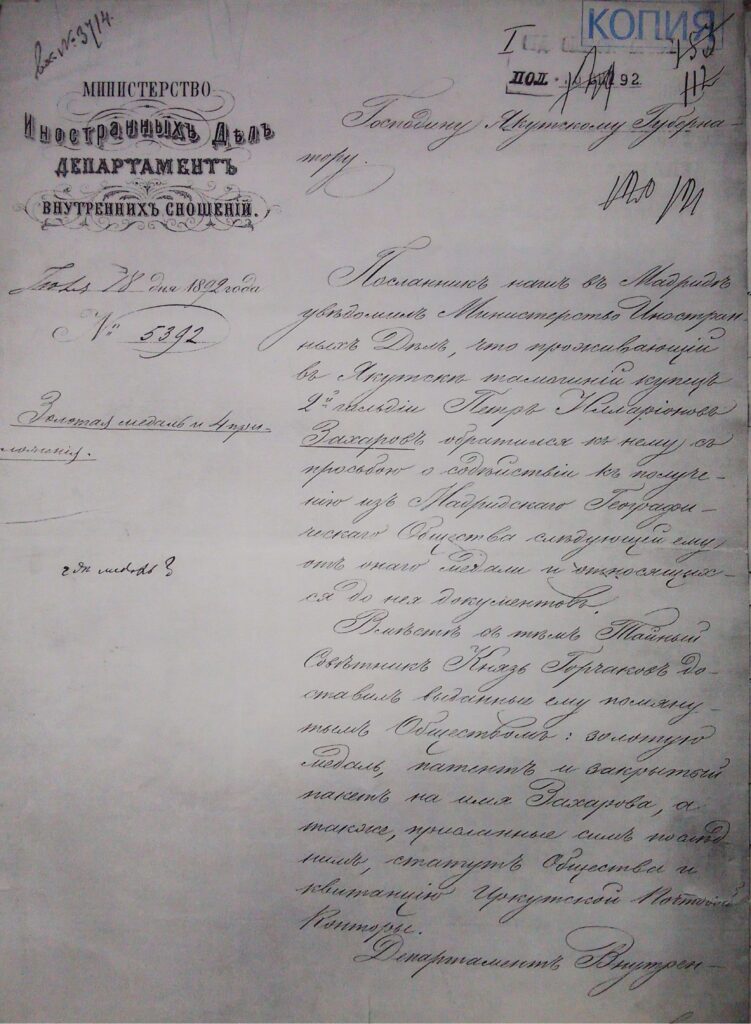 вх. № 3714.
КОПИЯ
I
ПОЛ. 92
183
112
МИНИСТЕРСТВО
Иностранныхъ Дѣлъ
ДЕПАРТАМЕНТЪ
ВНУТРЕННИХЪ СНОШЕНІЙ.
Господину Якутскому Губерна-
тору.
120 121
Іюля 18 дня 1892 года
№ 5392
Золотая медаль и 4 при-
ложенія.
Посланникъ нашъ въ Мадридѣ
увѣдомилъ Министерство Иностран-
ныхъ Дѣлъ, что проживающій
въ Якутскѣ тамошній купецъ
2-й гильдіи Петръ Илларіоновъ
Захаровъ обратился къ нему съ
просьбою о содѣйствіи къ получе-
нію изъ Мадридскаго Географи-
ческаго Общества слѣдующей ему
отъ онаго медали и относящих-
ся до нея документовъ.
Вмѣстѣ съ тѣмъ Тайный
Совѣтникъ Князь Горчаковъ до-
ставилъ выданные ему помяну-
тымъ Обществомъ: золотую
медаль, патентъ и закрытый
пакетъ на имя Захарова, а
также, присланные симъ послѣд-
нимъ, статутъ Общества и
квитанцію Иркутской Почтовой
Конторы.
Департаментъ Внутрен-